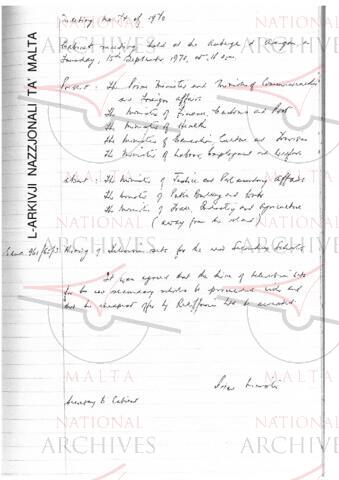 Meeting No 74 of 1970
Cabinet meeting held at the Auberge d'Aragon on
Tuesday, 15th September 1970, at 11 a.m.
Present : The Prime Minister and Minister of Commonwealth
and Foreign Affairs
The Minister of Finance, Customs and Port
The Minister of Health
The Minister of Education, Culture and Tourism
The Minister of Labour, Employment and Welfare
Absent : The Minister of Justice and Parliamentary Affairs
The Minister of Public Building and Works
The Minister of Trade, Industry and Agriculture
(away from the island)
Hiring of Television sets for the new Secondary Schools
It was agreed that the hire of television sets
for the new secondary schools be proceeded with and
that the cheapest offer by Rediffusion Ltd be accepted.
Secretary to Cabinet
L-ARKIVJI NAZZJONALI TA' MALTA
NATIONAL
ARCHIVES
MALTA